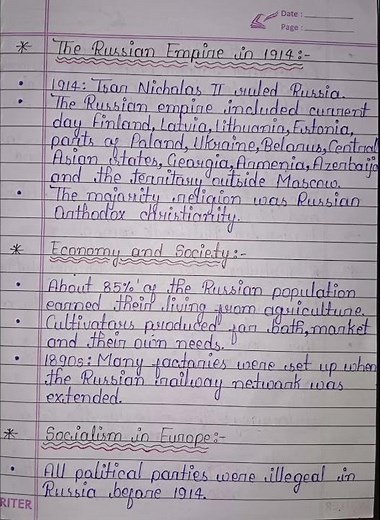 Date :
Page :
* The Russian Empire in 1914:-
• 1914: Tsar Nicholas II ruled Russia.
• The Russian empire included current
day Finland, Latvia, Lithuania, Estonia,
parts of Poland, Ukraine, Belarus, Central
Asian states, Georgia, Armenia, Azerbaija
and the territory outside Moscow.
• The majority religion was Russian
Orthodox christiantity.
* Economy and Society:-
• About 85% of the Russian population
earned their living from agriculture.
• Cultivators produced for both, market
and their own needs.
• 1890s: Many factories were set up when
the Russian railway network was
extended.
* Socialism in Europe:-
• All political parties were illegeal in
Russia before 1914.
RITER